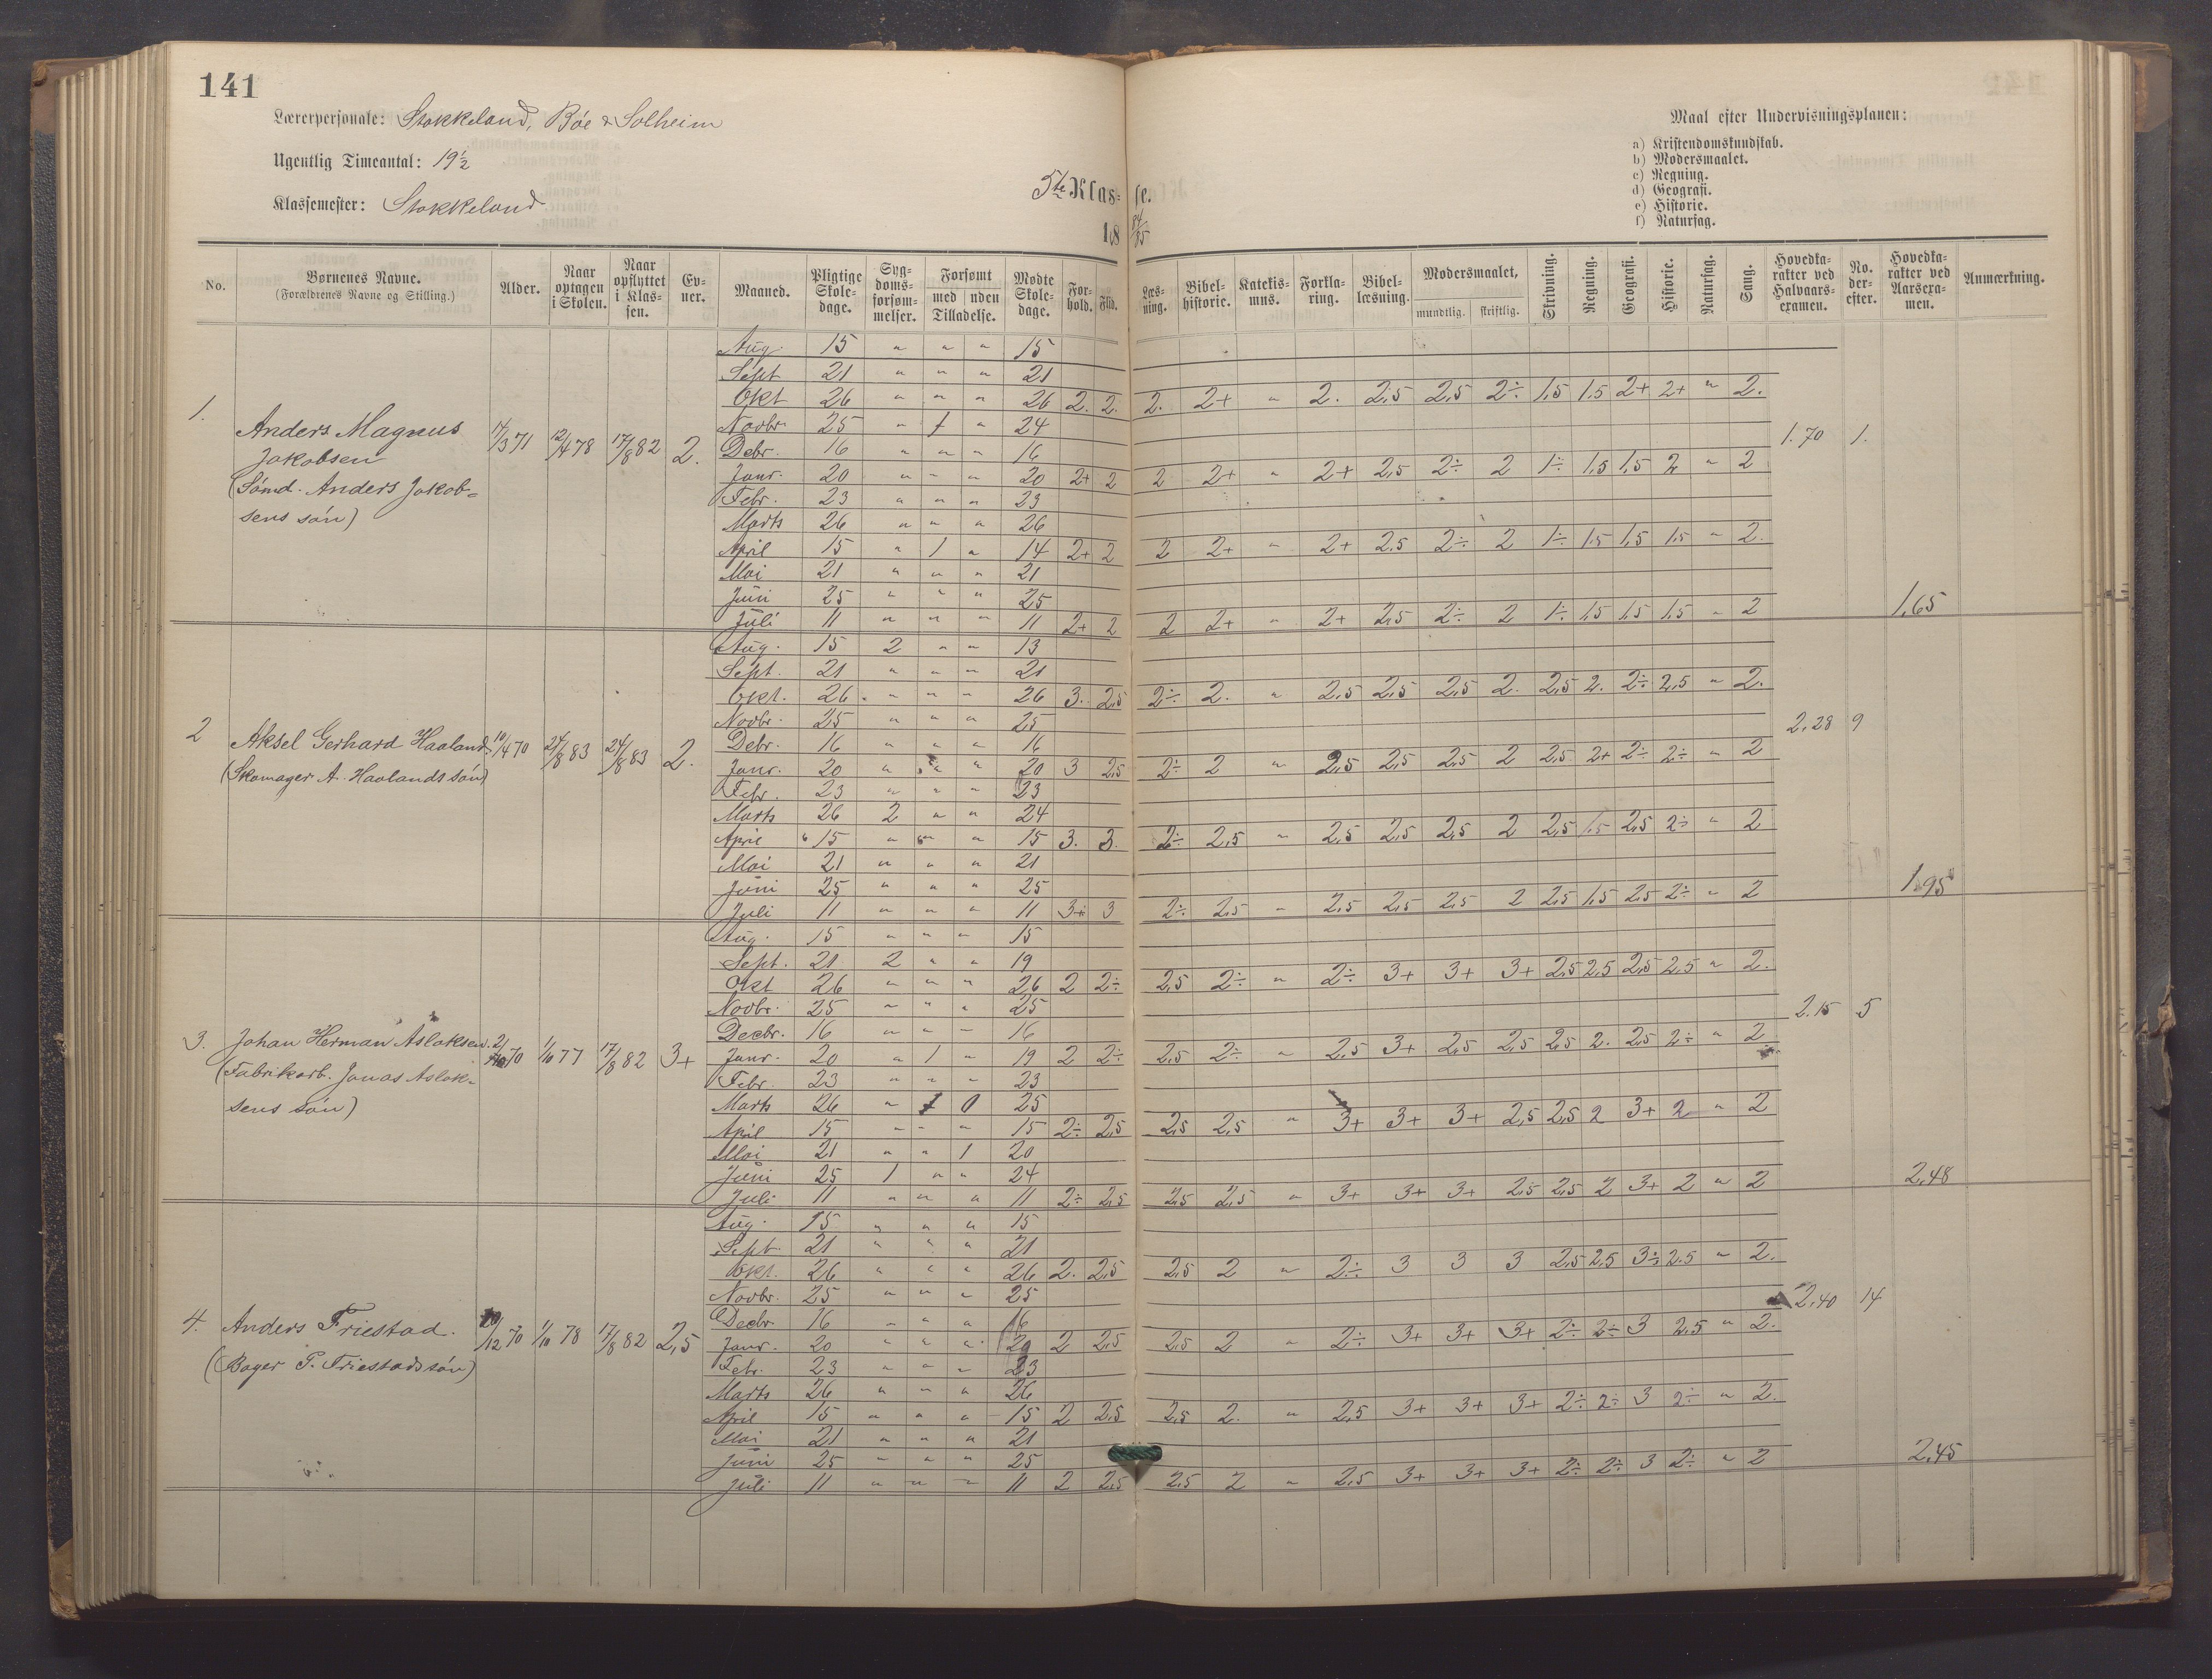 141
Lærerpersonale: Stokkeland, Bøe & Solheim
Ugentlig Timeantal: 19 1/2
Klassemester: Stokkeland
5te Klas- se.
18 84/85
Maal efter Undervisningsplanen:
a) Kristendomskundskab.
b) Modersmaalet.
c) Regning.
d) Geografi.
e) Historie.
f) Naturfag.
No. Børnenes Navne. (Forældrenes Navne og Stilling.) Alder. Naar optagen i Skolen. Naar opflyttet i Klassen. Evner. Maaned. Pligtige Skoledage. Sygdomsforsømmelser. Forsømt med uden Tilladelse. Mødte Skoledage. Forhold. Flid. Læsning. Bibelhistorie. Katekismus. Forklaring. Bibellæsning. Modersmaalet, mundtlig. skriftlig. Skrivning. Regning. Geografi. Historie. Naturfag. Sang. Hovedkarakter ved Halvaarsexamen. No. derefter. Hovedkarakter ved Aarsexamen. Anmærkning.
1. Anders Magnus Jakobsen (Sømd. Anders Jakobsens søn) 17/3 71 12/4 78 17/8 82 2. 1.70 1. 1,65
Aug. 15 " " " 15
Sept 21 " " " 21
Okt 26 " " " 26 2. 2. 2. 2+ " 2. 2,5 2,5 2÷ 1,5 1,5 2+ 2+ " 2.
Novbr. 25 " 1 " 24
Debr. 16 " " " 16
Janr. 20 " " " 20 2+ 2 2 2+ " 2+ 2,5 2÷ 2 1÷ 1,5 1,5 2 " 2
Febr. 23 " " " 23
Marts 26 " " " 26
April 15 " 1 " 14 2+ 2 2 2+ " 2+ 2,5 2÷ 2 1÷ 1,5 1,5 1,5 " 2.
Mai 21 " " " 21
Juni 25 " " " 25
Juli 11 " " " 11 2+ 2 2 2+ " 2+ 2,5 2÷ 2 1÷ 1,5 1,5 1,5 " 2
2 Aksel Gerhard Haaland (Skomager A. Haalands søn) 10/4 70 24/8 83 24/8 83 2. 2,28 9 1,95
Aug. 15 2 " " 13
Sept. 21 " " " 21
Okt. 26 " " " 26 3. 2,5 2÷ 2. " 2,5 2,5 2,5 2. 2,5 2. 2÷ 2,5 " 2.
Novbr. 25 " " " 25
Debr. 16 " " " 16
Janr. 20 " " " 20 3 2,5 2÷ 2 " 2,5 2,5 2,5 2 2,5 2+ 2÷ 2÷ " 2
Febr. 23 " " " 23
Marts 26 2 " " 24
April 15 " " " 15 3. 3. 2÷ 2,5 " 2,5 2,5 2,5 2 2,5 1,5 2,5 2÷ " 2
Mai 21 " " " 21
Juni 25 " " " 25
Juli 11 " " " 11 3+ 3 2÷ 2,5 " 2,5 2,5 2,5 2 2,5 1,5 2,5 2÷ " 2
3. Johan Herman Aslaksen. (Fabrikarb. Jonas Aslaksens søn) 70 1/10 77 17/8 82 3+ 2.15 5 2,48
Aug. 15 " " " 15
Sept. 21 2 " " 19
Okt 26 " " " 26 2 2÷ 2,5 2÷ " 2÷ 3+ 3+ 3+ 2,5 2,5 2,5 2,5 " 2.
Novbr. 25 " " " 25
Decbr. 16 " " " 16
Janr. 20 " 1 " 19 2 2÷ 2,5 2÷ " 2,5 3+ 2,5 2,5 2,5 2. 2,5 2÷ " 2
Febr. 23 " " " 23
Marts 26 " 1 0 25
April 15 " " " 15 2÷ 2,5 2,5 2,5 " 3+ 3+ 3+ 2,5 2,5 2 3+ 2 " 2
Mai 21 " " 1 20
Juni 25 1 " " 24
Juli 11 " " " 11 2÷ 2,5 2,5 2,5 " 3+ 3+ 3+ 2,5 2,5 2 3+ 2 " 2
4. Anders Friestad. (Bager P. Friestads søn) /12 70 1/10 78 17/8 82 2,5 2,40 14 2,45
Aug. 15 " " " 15
Sept. 21 " " " 21
Okt. 26 " " " 26 2. 2,5 2,5 2 " 2÷ 3 3 3 2,5 2,5 3÷ 2,5 " 2.
Novbr. 25 " " " 25
Decbr. 16 " " " 16
Janr. 20 " " " 20 2 2,5 2,5 2 " 2÷ 3+ 3+ 3+ 2÷ 2÷ 3 2,5 " 2.
Febr. 23 " " " 23
Marts 26 " " " 26
April 15 " " " 15 2 2,5 2,5 2. " 2,5 3+ 3+ 3+ 2÷ 2÷ 3 2÷ " 2.
Mai 21 " " " 21
Juni 25 " " " 25
Juli 11 " " " 11 2 2,5 2,5 2 " 2,5 3+ 3+ 3+ 2÷ 2÷ 3 2÷ " 2